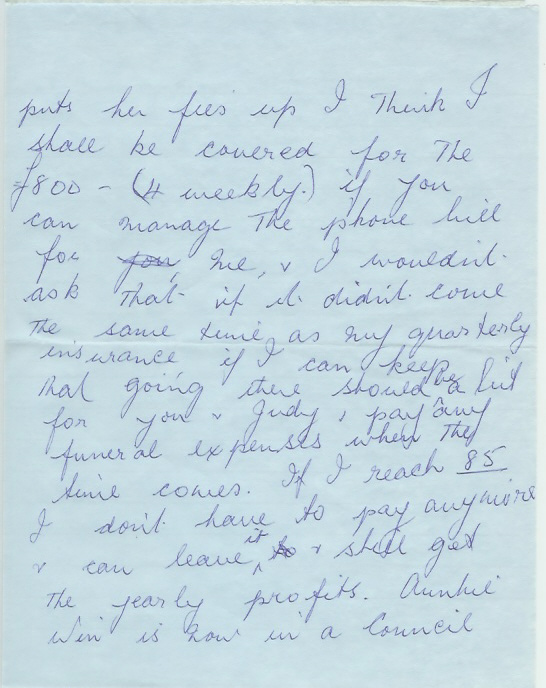 puts her fies up I Think I
shall be covered for The
£800 - (4 weekly.) if you
can manage The phone bill
for you, me, & I wouldn't
ask That if it didn't come
The same time, as my quarterly
insurance if I can keep
that going there should be a bit
for you & Judy, & pay any
funeral expenses when The
time comes. If I reach 85
I don't have to pay anymore
& can leave it, to & still get
The yearly profits. Auntie
Win is now in a Council